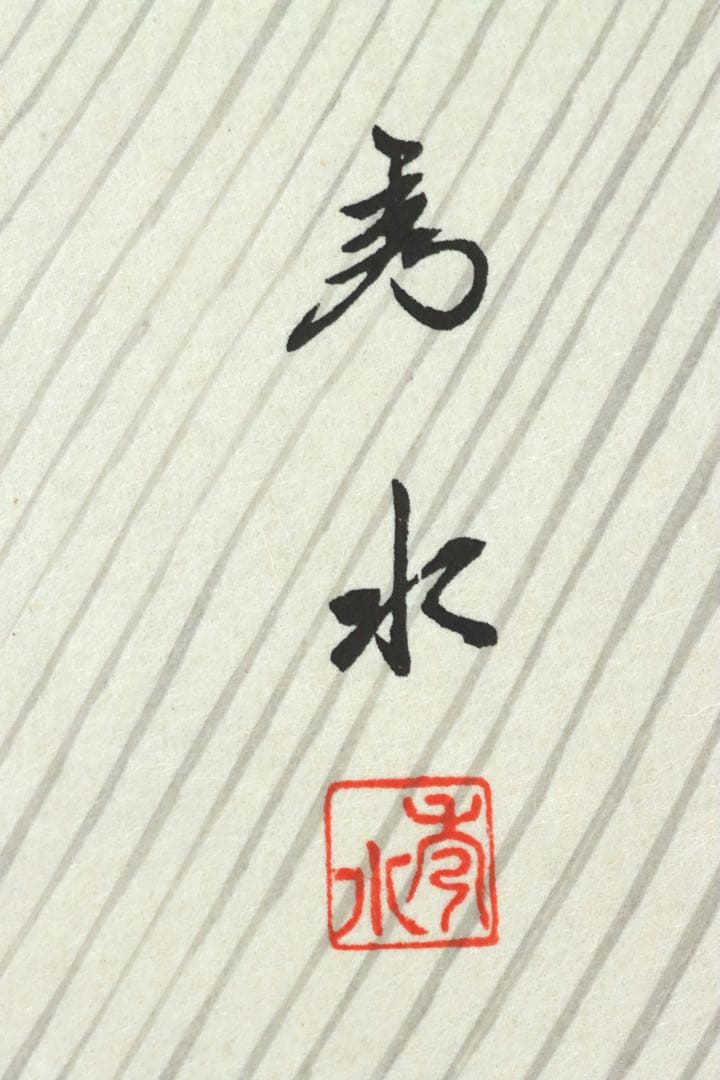 秀水
秀水